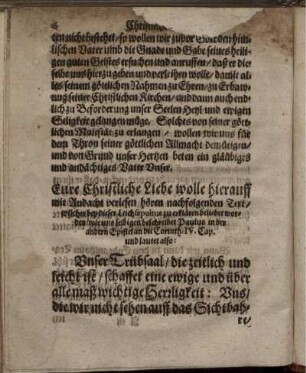 Christ
ten nicht bestehet / so wollen wir zuvor Gott den him-
lischen Vater umb die Gnade und Gabe seines heili-
gen guten Geistes ersuchen und anruffen / daß er die-
selbe uns hierzu geben und verleihen wolle / damit al-
les seinem göttlichen Nahmen zu Ehren / zu Erbaw-
ung seiner Christlichen Kirchen / und dann auch end-
lich zu Beforderung unser Seelen Heyl und ewigen
Seligkeit gelangen möge. Solches von seiner gött-
lichen Maiestät zu erlangen / wollen wir uns für
dem Thron seiner göttlichen Allmacht demütigen /
und von Grund unser Hertzen beten ein gläubiges
und andächtiges Vater Unser.
Eure Christliche Liebe wolle hierauff
mit Andacht verlesen hören nachfolgenden Text /
welcher bey dieser Leichsepultur zu erklären beliebet wor-
den / wie uns selbigen beschreibet Paulus in der
andern Epistel an die Corinth. IV. Cap.
und lautet also:
Unser Trübsaal / die zeitlich und
leicht ist / schaffet eine ewige und über
alle maß wichtige Herrligkeit: Uns /
die wir nicht sehen auff das Sichtbah-
re /